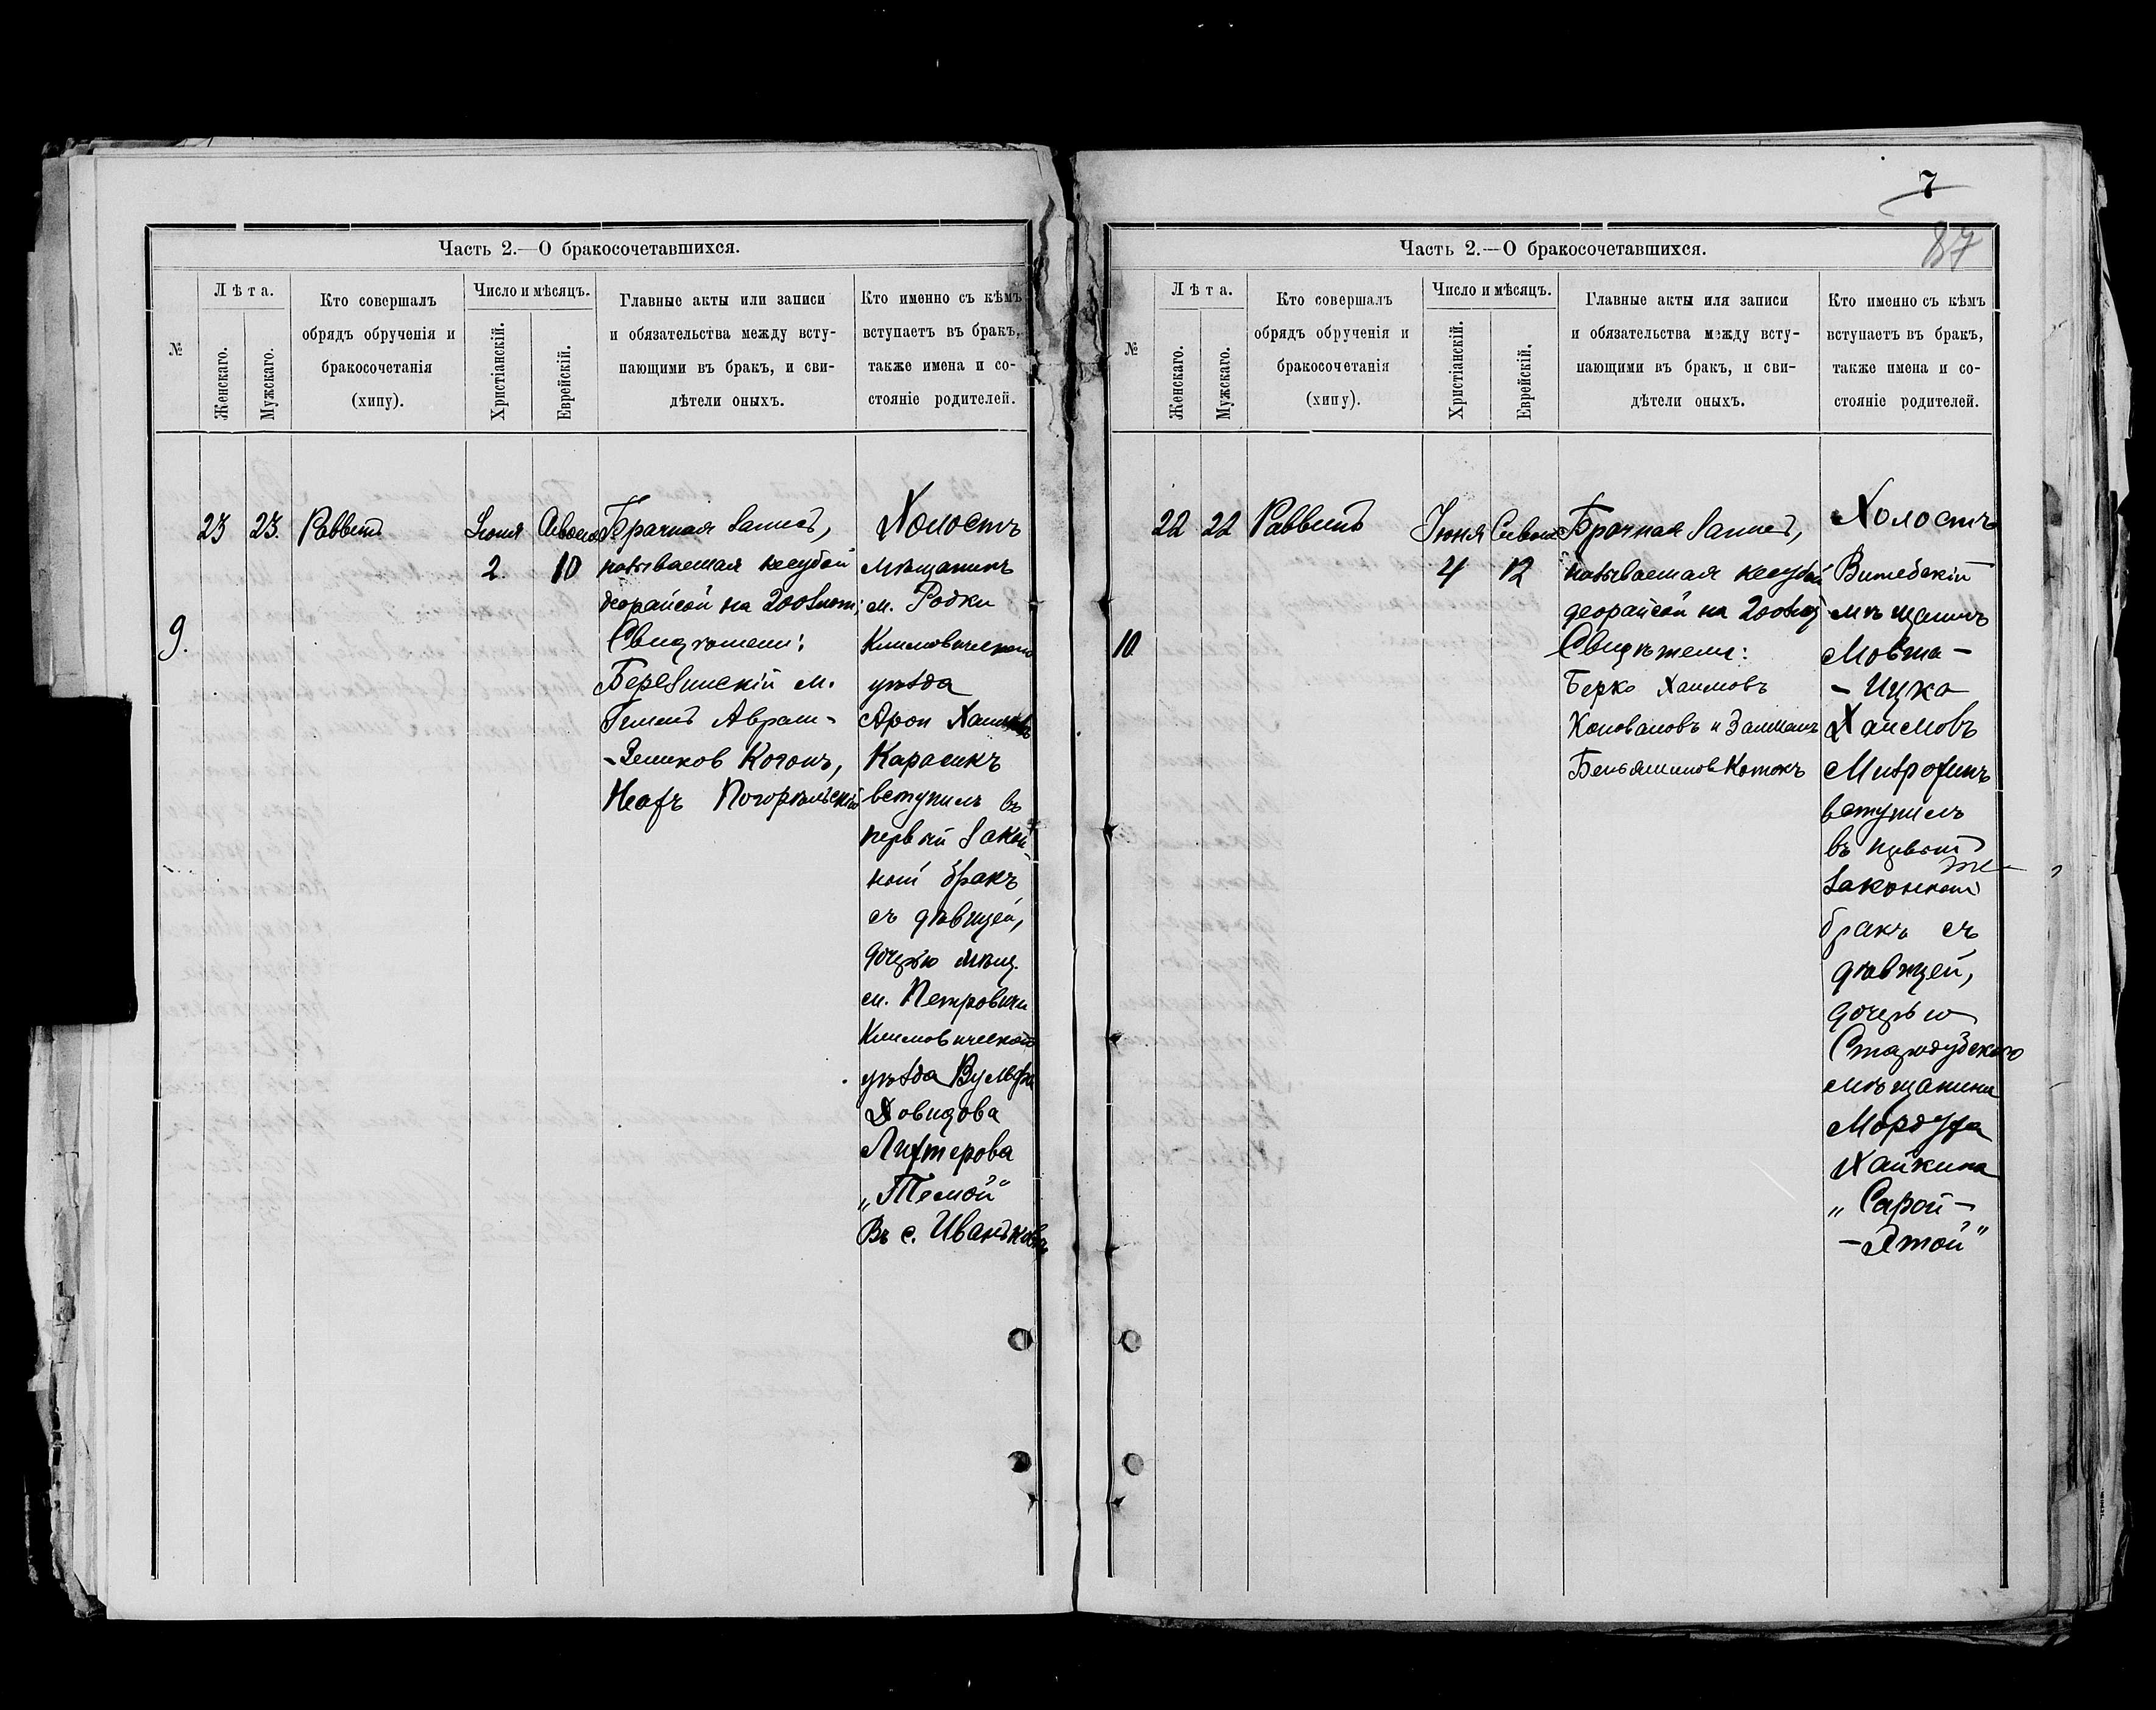 Часть 2.—О бракосочетавшихся.
№
Лѣта.
Женскаго.
Мужскаго.
Кто совершалъ
обрядъ обрученія и
бракосочетанія
(хипу).
Число и мѣсяцъ.
Христіанскій.
Еврейскій.
Главные акты или записи
и обязательства между всту-
пающими въ бракъ, и сви-
дѣтели оныхъ.
Кто именно съ кѣмъ
вступаетъ въ бракъ,
также имена и со-
стояніе родителей.
9.
23
23.
Раввинъ
Іюня
2
Сивона
10
Брачная запись,
называемая кесубой
деорайсой на 200 злот;
Свидѣтели:
Березинскій м.
Авраам-
-Зеликов Коганъ,
Погорѣльскій
Холостъ
мѣщанинъ
м. Родни
Климовическаго
уѣзда
Арон Хаимовъ
Карасикъ
вступилъ въ
первый закон-
ный бракъ
съ дѣвицей,
дочерью мѣщ.
м. Петровичи
Климовическаго
уѣзда Вульфа
Довидова
Лихтерова
„Темой"
Въ с.
7
87
Часть 2.—О бракосочетавшихся.
№
Лѣта.
Женскаго.
Мужскаго.
Кто совершалъ
обрядъ обрученія и
бракосочетанія
(хипу).
Число и мѣсяцъ.
Христіанскій.
Еврейскій.
Главные акты или записи
и обязательства между всту-
пающими въ бракъ, и сви-
дѣтели оныхъ.
Кто именно съ кѣмъ
вступаетъ въ бракъ,
также имена и со-
стояніе родителей.
10
22
22
Раввинъ
Іюня
4
Сивона
12
Брачная запись,
называемая кесубой
деорайсой на 200 злот
Свидѣтели:
Берко Хаимовъ
Коноваловъ и Залманъ
Беньяминов Котокъ
Холостъ
Витебскій
мѣщанинъ
Мовша-
-Ицко
Хаимовъ
вступилъ
въ первый
законный
бракъ съ
дѣвицей,
дочерью
Стародубскаго
мѣщанина
Мордуха
Хайкина
„Сарой-
-Этой"